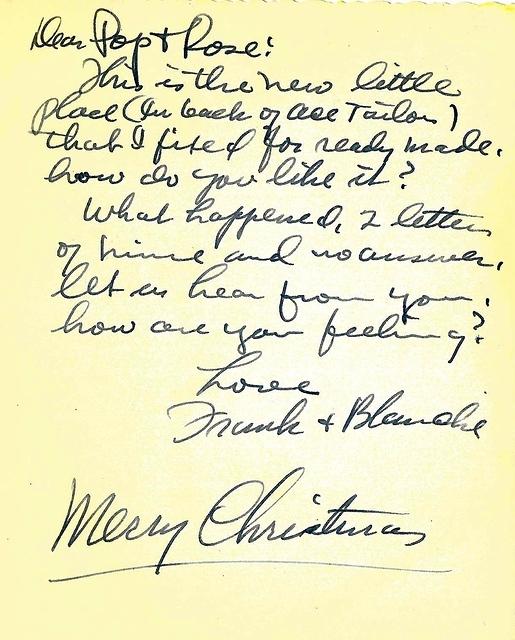 Dear Pop + Rose:
This is the new little
place (In back of Ace Tailor)
that I fixed for ready made.
how do you like it?
What happened, 2 letters
of mine and no answer.
let us hear from you.
how are you feeling?
Love
Frank + Blanche
Merry Christmas